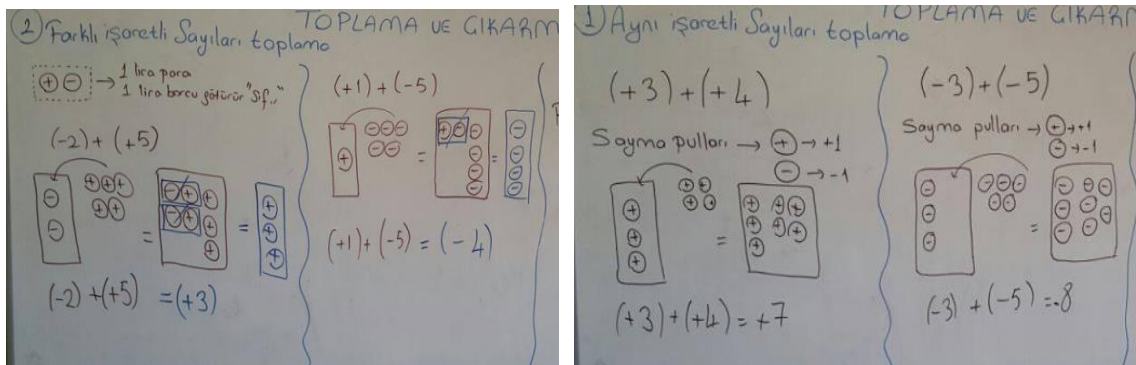 TOPLAMA VE ÇIKARM
2) Farklı işaretli Sayıları toplama
⊕ ⊖ → 1 lira para
1 lira borcu götürür "sıf.."
(-2) + (+5)
=
=
(-2) + (+5) = (+3)
(+1) + (-5)
=
=
(+1) + (-5) = (-4)
TOPLAMA VE ÇIKARM
1) Aynı işaretli Sayıları toplama
(+3) + (+4)
Sayma pulları → ⊕ → +1
⊖ → -1
=
(+3) + (+4) = +7
(-3) + (-5)
Sayma pulları → ⊕ → +1
⊖ → -1
=
(-3) + (-5) = -8